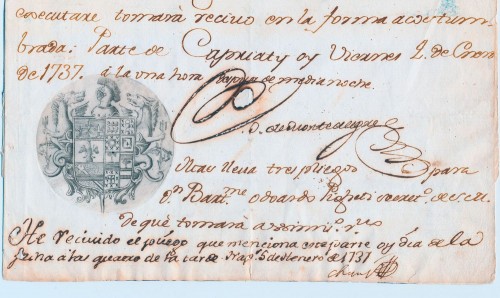 executare tomará reciuo en la forma acostum
brada: Parte de Capriaty oy Viernes 4. de Enero
de 1737. á la una hora despues de media noche.
D. de Montealegre
Mas lleua tres pliegos para
Dn. Barme. Odoardo secreto. de S. M.
de que tomara assimi. rvo
He reciuido el pliego que menciona este parte oy dia de la
fecha a las quatro de la tarde Nap.s 5 de Henero de 1737